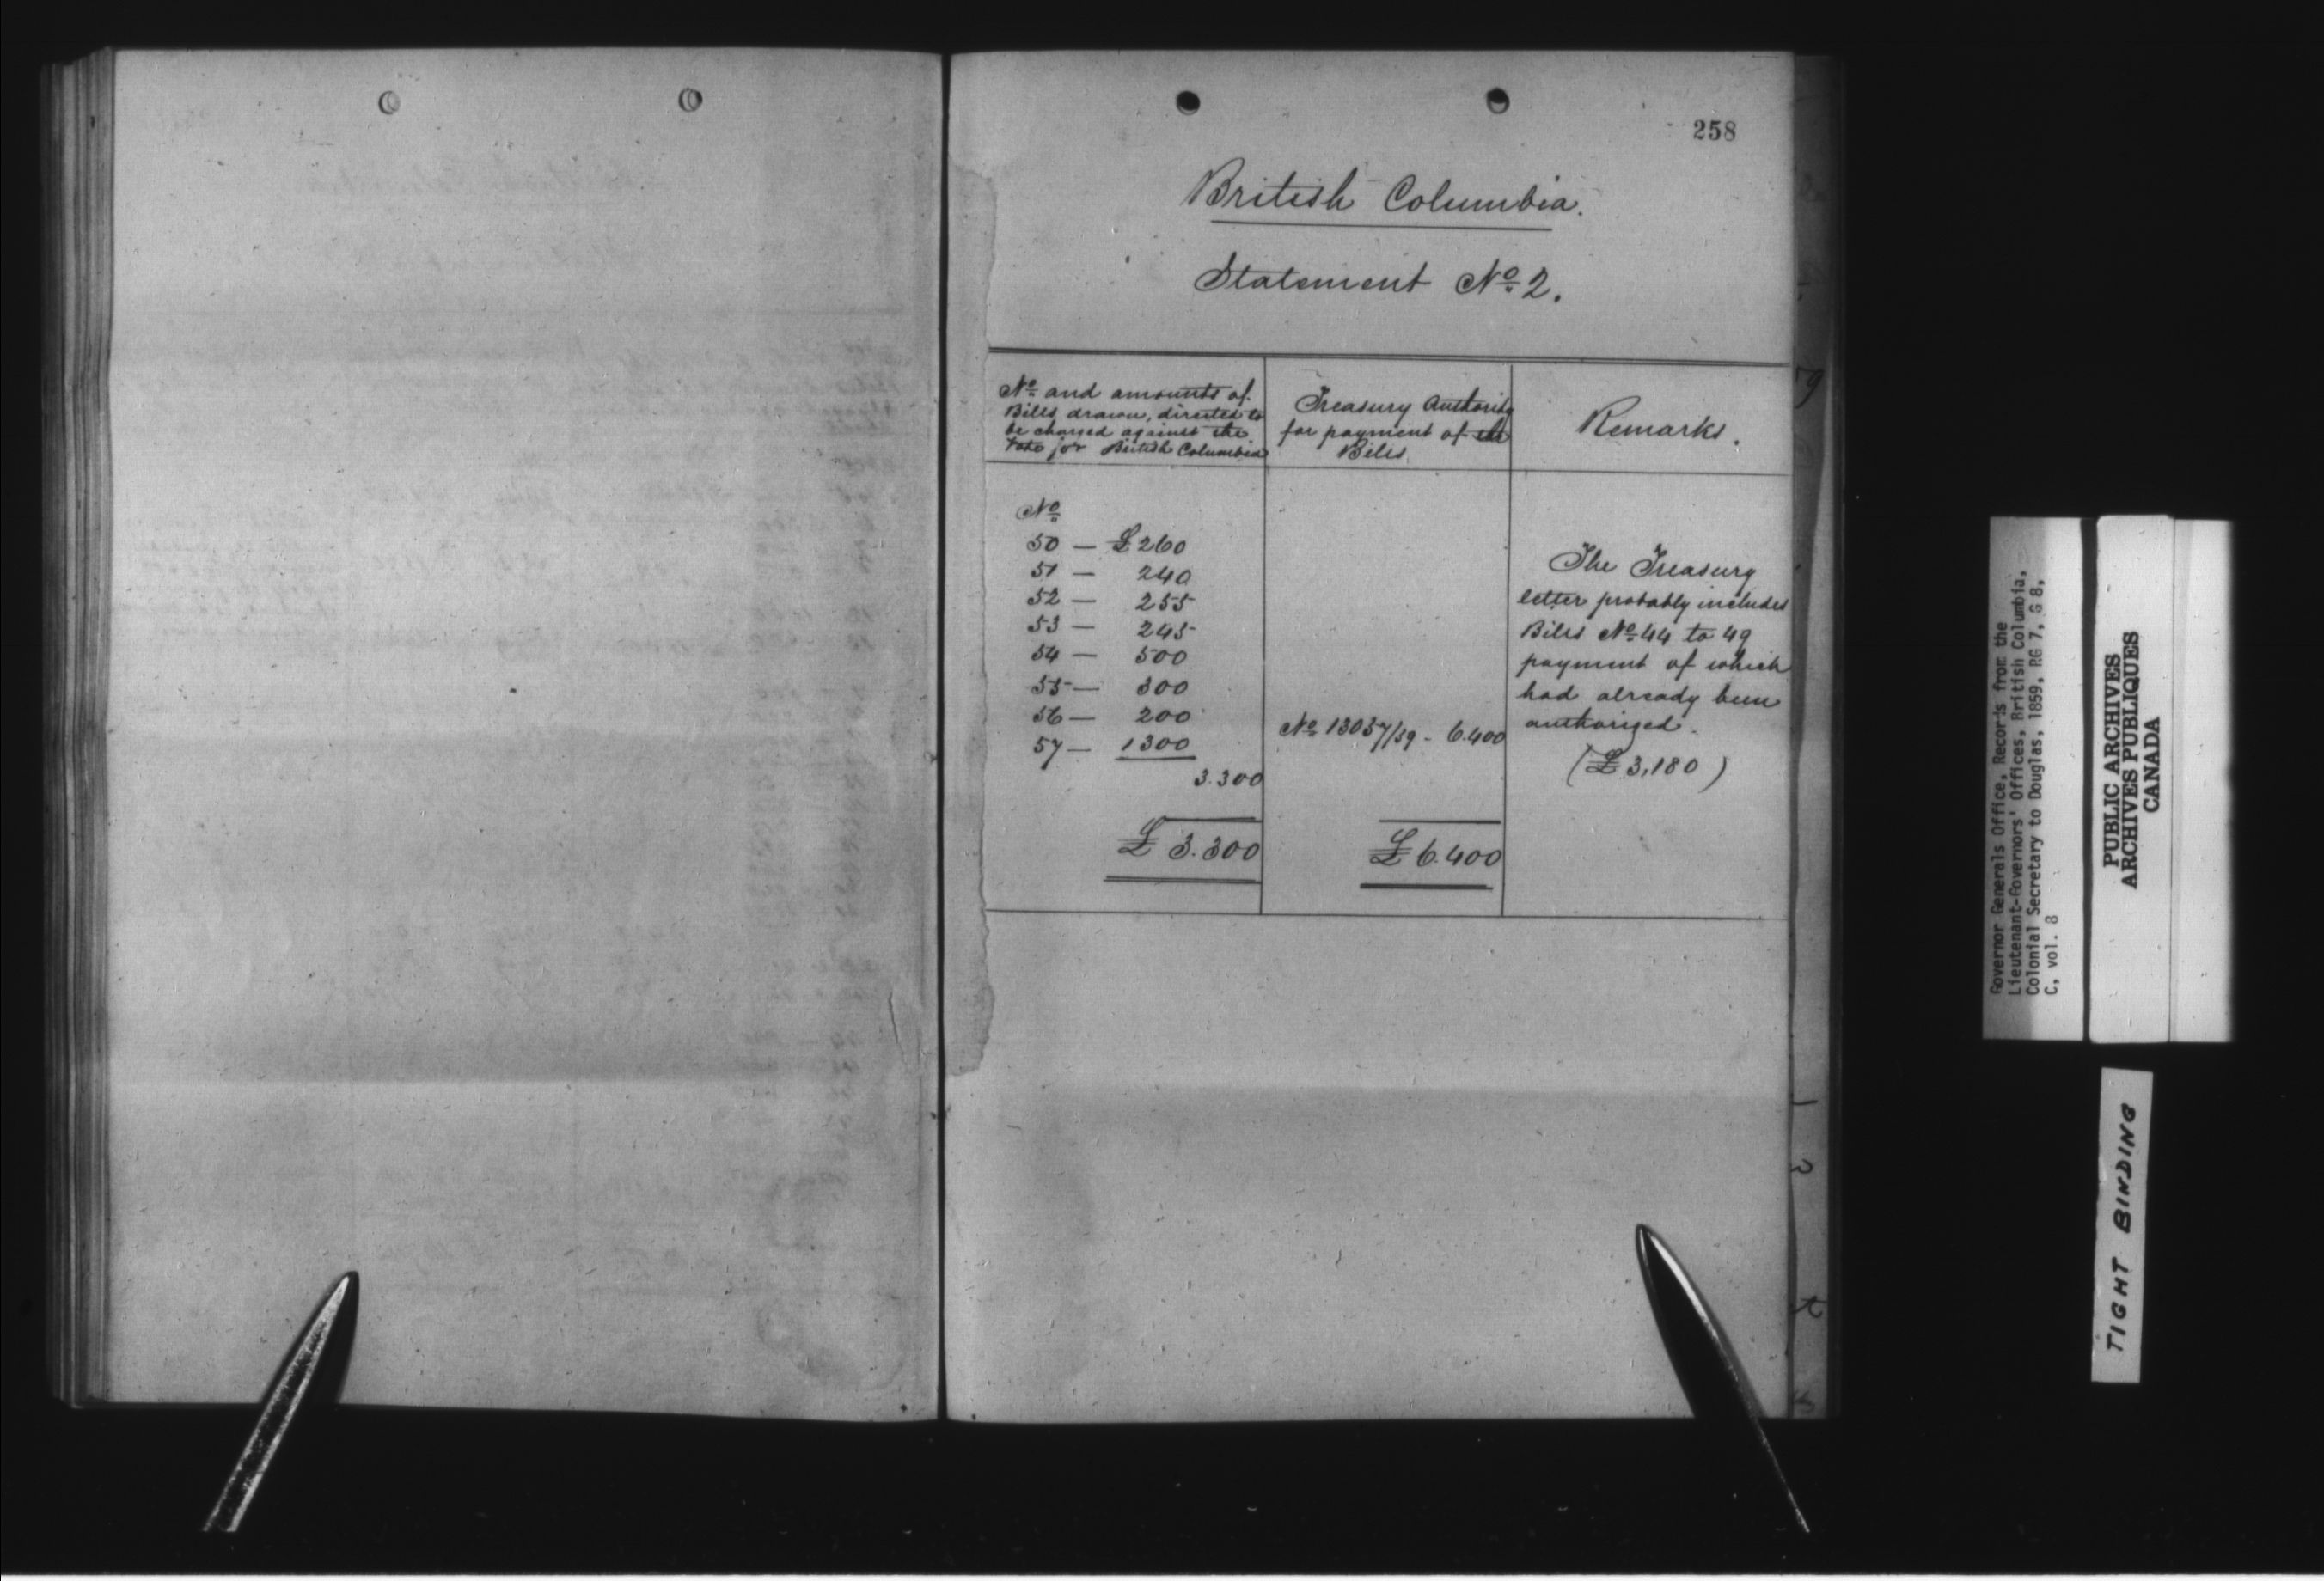 258
British Columbia.
Statement No. 2.
No. and amounts of
Bills drawn, directed to
be charged against the
Vote for British Columbia
Treasury Authority
for payment of the
Bills
Remarks.
No.
50 — £260
51 — 240
52 — 255
53 — 245
54 — 500
55 — 300
56 — 200
57 — 1300
3.300
£ 3.300
No. 13057/59 - 6.400
£ 6.400
The Treasury
letter probably includes
Bills No. 44 to 49
payment of which
had already been
authorized.
(£3,180)
Governor Generals Office, Records from the
Lieutenant-Governors' Offices, British Columbia,
Colonial Secretary to Douglas, 1859, RG 7, G 8,
C, vol. 8
PUBLIC ARCHIVES
ARCHIVES PUBLIQUES
CANADA
TIGHT BINDING